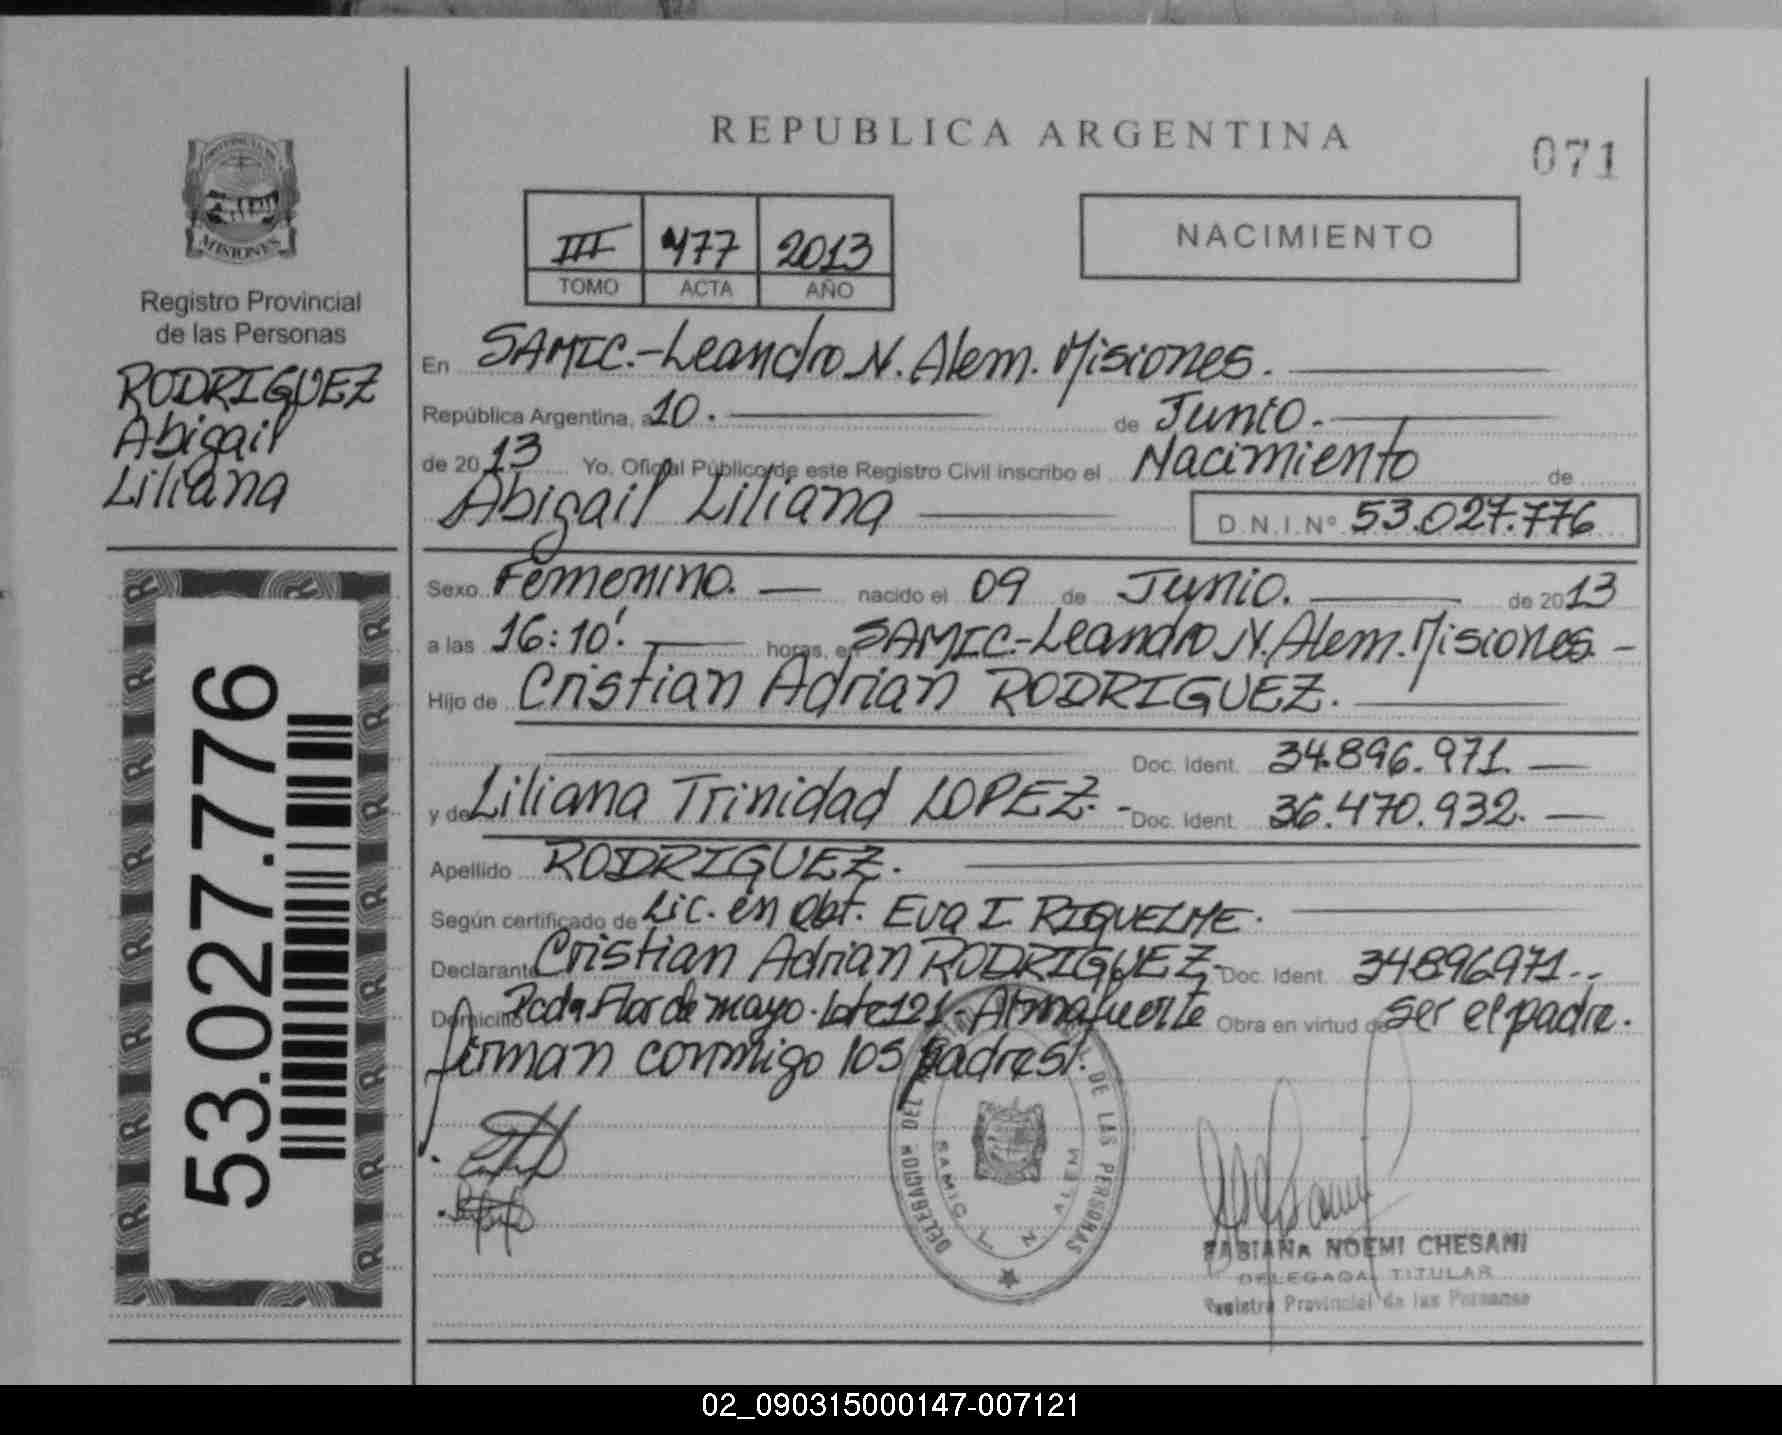 REPUBLICA ARGENTINA
071
MISIONES
Registro Provincial
de las Personas
RODRIGUEZ
Abigail
Liliana
III 477 2013
TOMO ACTA AÑO
NACIMIENTO
En SAMIC.-Leandro N. Alem. Misiones.
República Argentina, a 10. de Junio.-
de 2013 Yo, Oficial Público de este Registro Civil inscribo el Nacimiento de
Abigail Liliana D.N.I.Nº 53.027.776
Sexo Femenino. nacido el 09 de Junio. de 2013
a las 16:10'. horas, en SAMIC.-Leandro N. Alem. Misiones. -
Hijo de Cristian Adrian RODRIGUEZ.
Doc. Ident. 34.896.971.
y de Liliana Trinidad LOPEZ.- Doc. Ident. 36.470.932.
Apellido RODRIGUEZ.
Según certificado de Lic. en Obt. Eva I RIQUELME.
Declarante Cristian Adrian RODRIGUEZ- Doc. Ident. 34896971..
Domicilio Pcda Flor de mayo. Lote 121- Almafuerte Obra en virtud de ser el padre.
firman conmigo los padres!.
53.027.776
DELEGACION DE LAS PERSONAS
SAMIC L. N. ALEM
FABIANA NOEMI CHESANI
DELEGADA TITULAR
Registro Provincial de las Personas
02_090315000147-007121